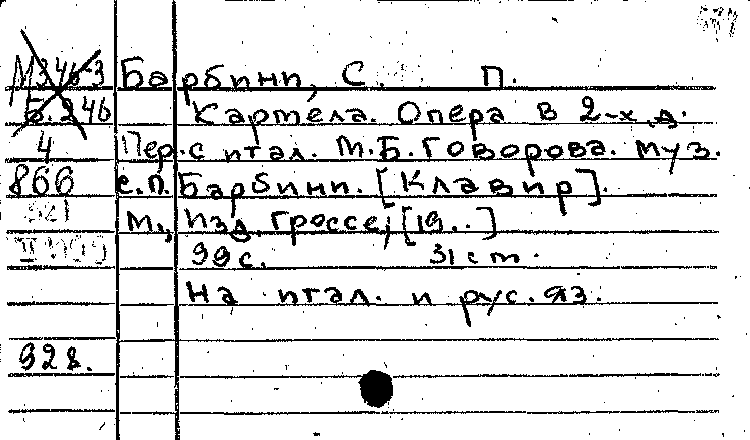 М346-3 Барбини, С. П.
Б.246 Картела. Опера в 2-х д.
4 Пер. с итал. М.Б. Говорова. муз.
866 с.п. Барбини. [Клавир].
М., Изд. Гроссе, [19..]
99 с. 31 ст.
На итал. и рус. яз.
928.